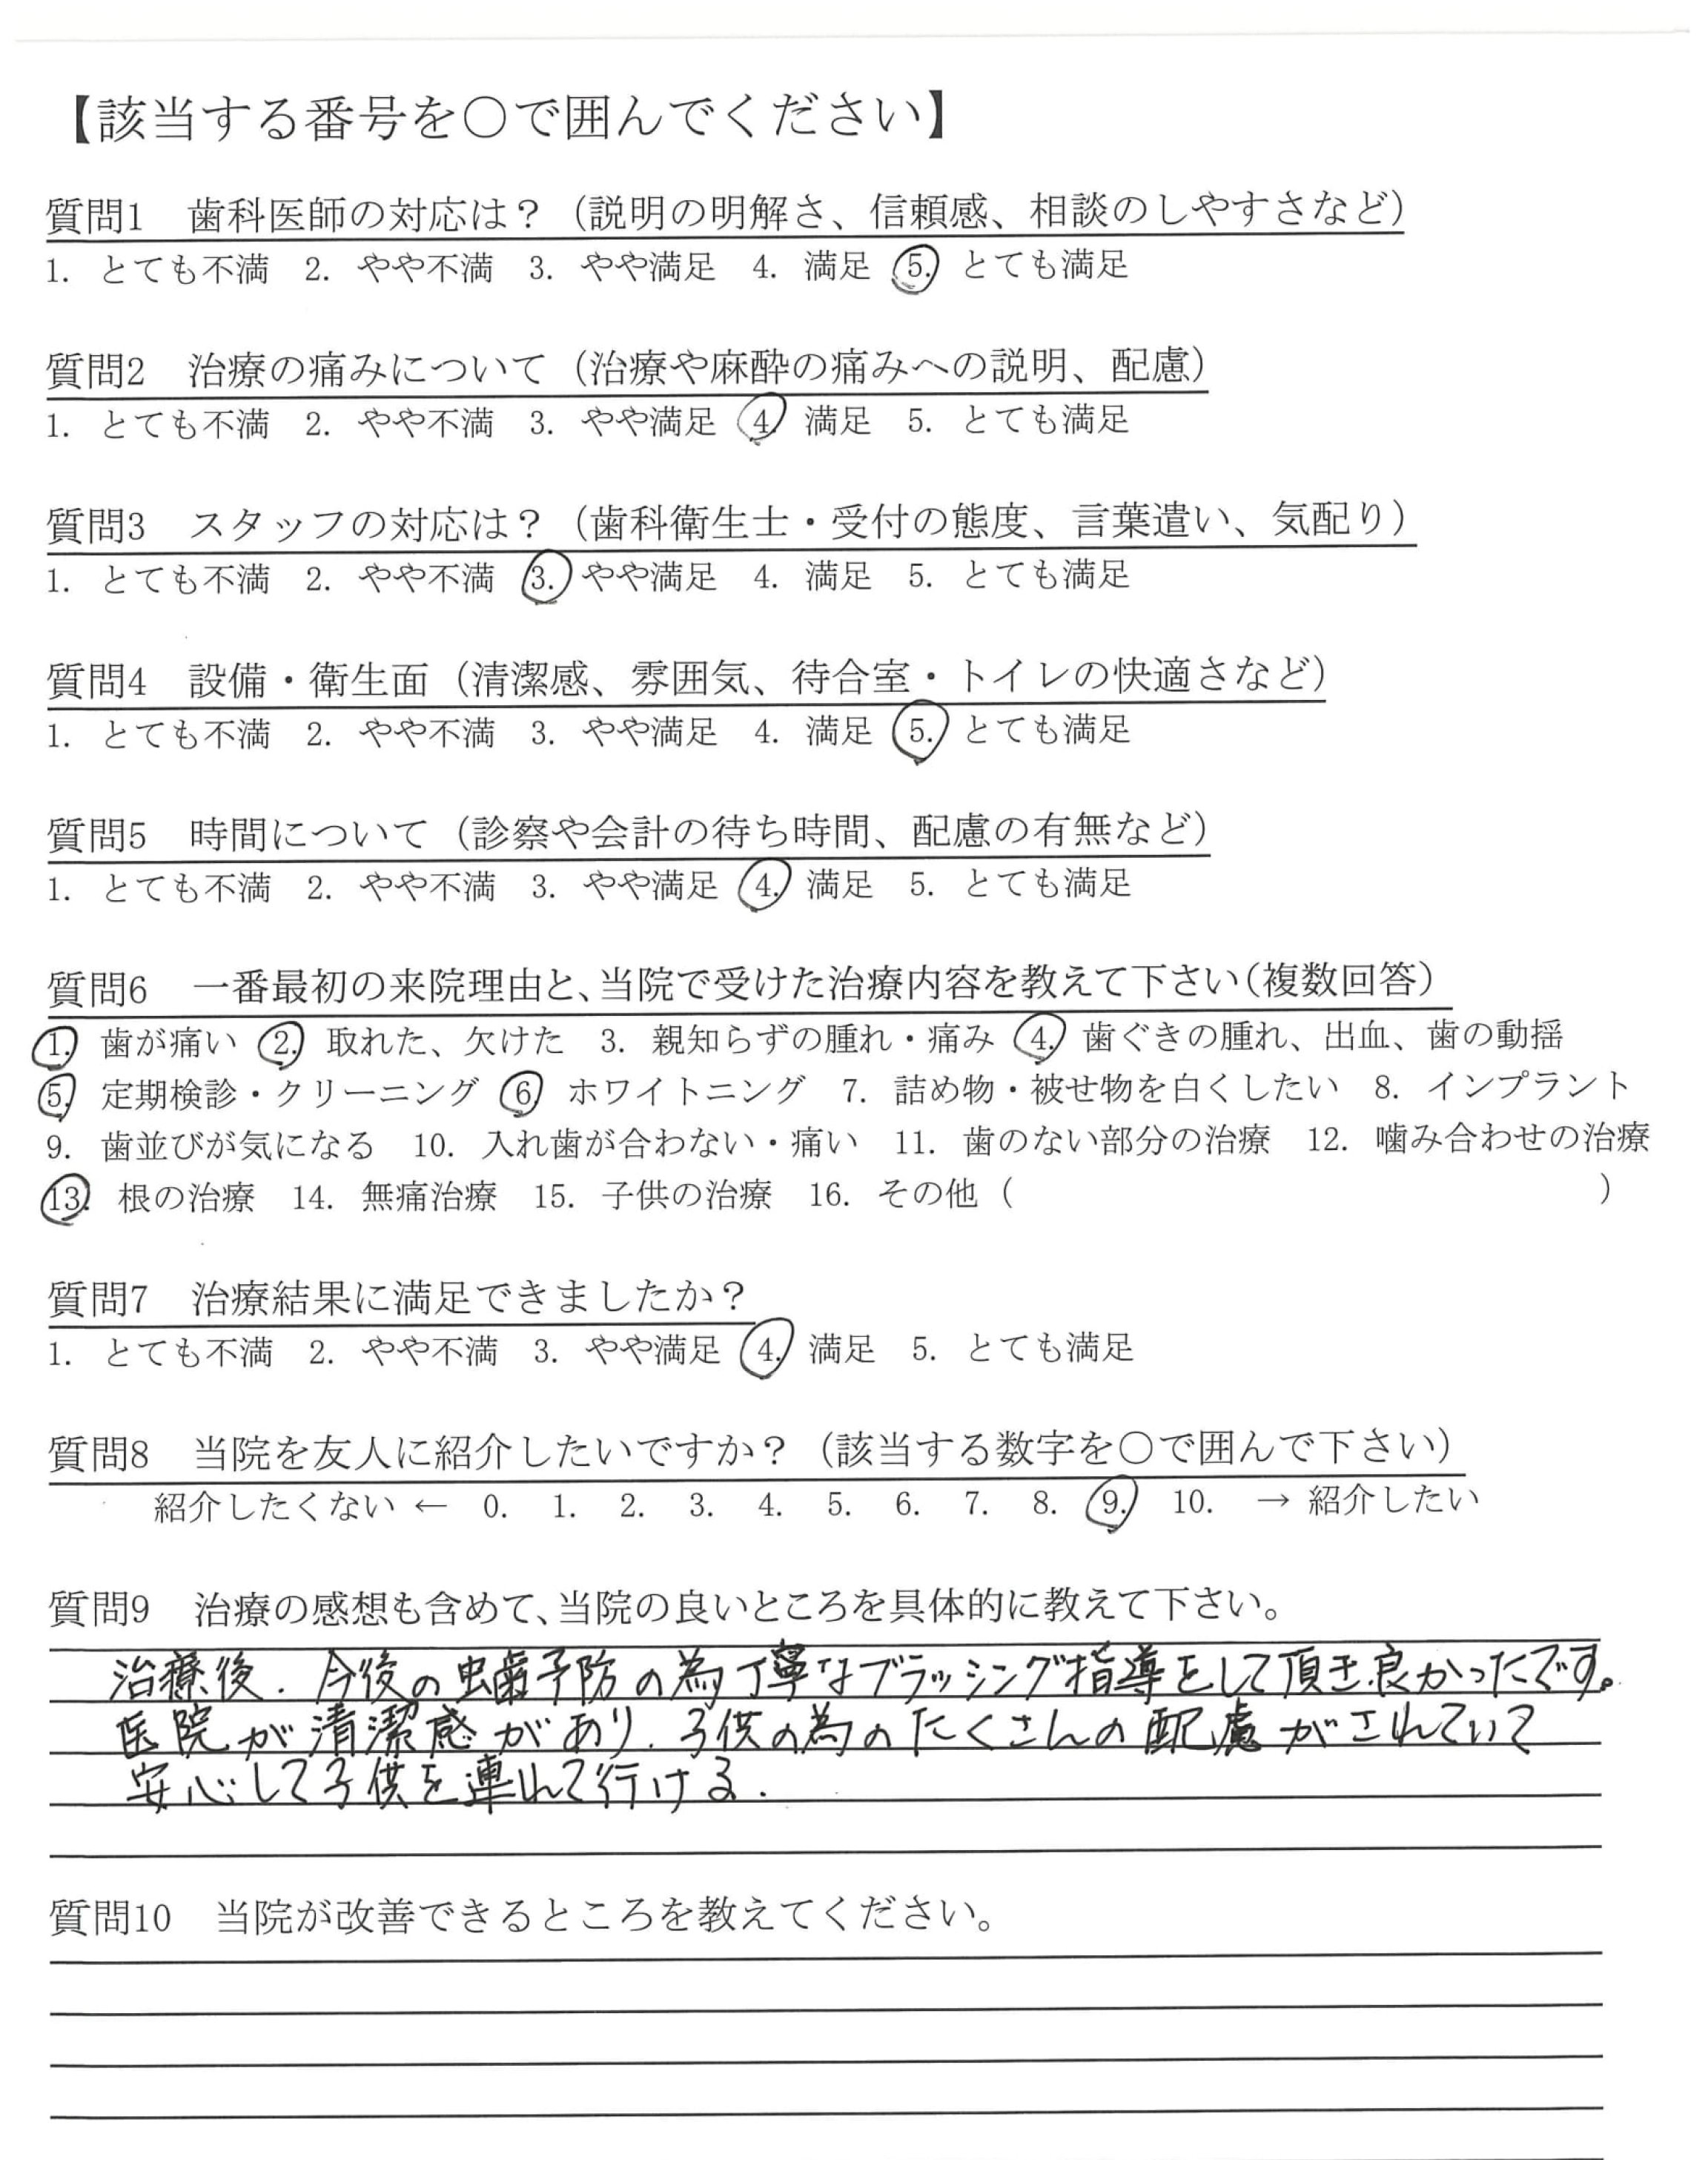 【該当する番号を○で囲んでください】
質問1　歯科医師の対応は？（説明の明解さ、信頼感、相談のしやすさなど）
1. とても不満　2. やや不満　3. やや満足　4. 満足　5. とても満足
質問2　治療の痛みについて（治療や麻酔の痛みへの説明、配慮）
1. とても不満　2. やや不満　3. やや満足　4. 満足　5. とても満足
質問3　スタッフの対応は？（歯科衛生士・受付の態度、言葉遣い、気配り）
1. とても不満　2. やや不満　3. やや満足　4. 満足　5. とても満足
質問4　設備・衛生面（清潔感、雰囲気、待合室・トイレの快適さなど）
1. とても不満　2. やや不満　3. やや満足　4. 満足　5. とても満足
質問5　時間について（診察や会計の待ち時間、配慮の有無など）
1. とても不満　2. やや不満　3. やや満足　4. 満足　5. とても満足
質問6　一番最初の来院理由と、当院で受けた治療内容を教えて下さい（複数回答）
1. 歯が痛い　2. 取れた、欠けた　3. 親知らずの腫れ・痛み　4. 歯ぐきの腫れ、出血、歯の動揺
5. 定期検診・クリーニング　6. ホワイトニング　7. 詰め物・被せ物を白くしたい　8. インプラント
9. 歯並びが気になる　10. 入れ歯が合わない・痛い　11. 歯のない部分の治療　12. 噛み合わせの治療
13. 根の治療　14. 無痛治療　15. 子供の治療　16. その他（　　　　　　　　）
質問7　治療結果に満足できましたか？
1. とても不満　2. やや不満　3. やや満足　4. 満足　5. とても満足
質問8　当院を友人に紹介したいですか？（該当する数字を○で囲んで下さい）
紹介したくない ← 0.　1.　2.　3.　4.　5.　6.　7.　8.　9.　10.　→ 紹介したい
質問9　治療の感想も含めて、当院の良いところを具体的に教えて下さい。
治療後、今後の虫歯予防の為丁寧なブラッシング指導をして頂き良かったです。
医院が清潔感があり、子供の為のたくさんの配慮がされていて
安心して子供を連れて行ける．
質問10　当院が改善できるところを教えてください。